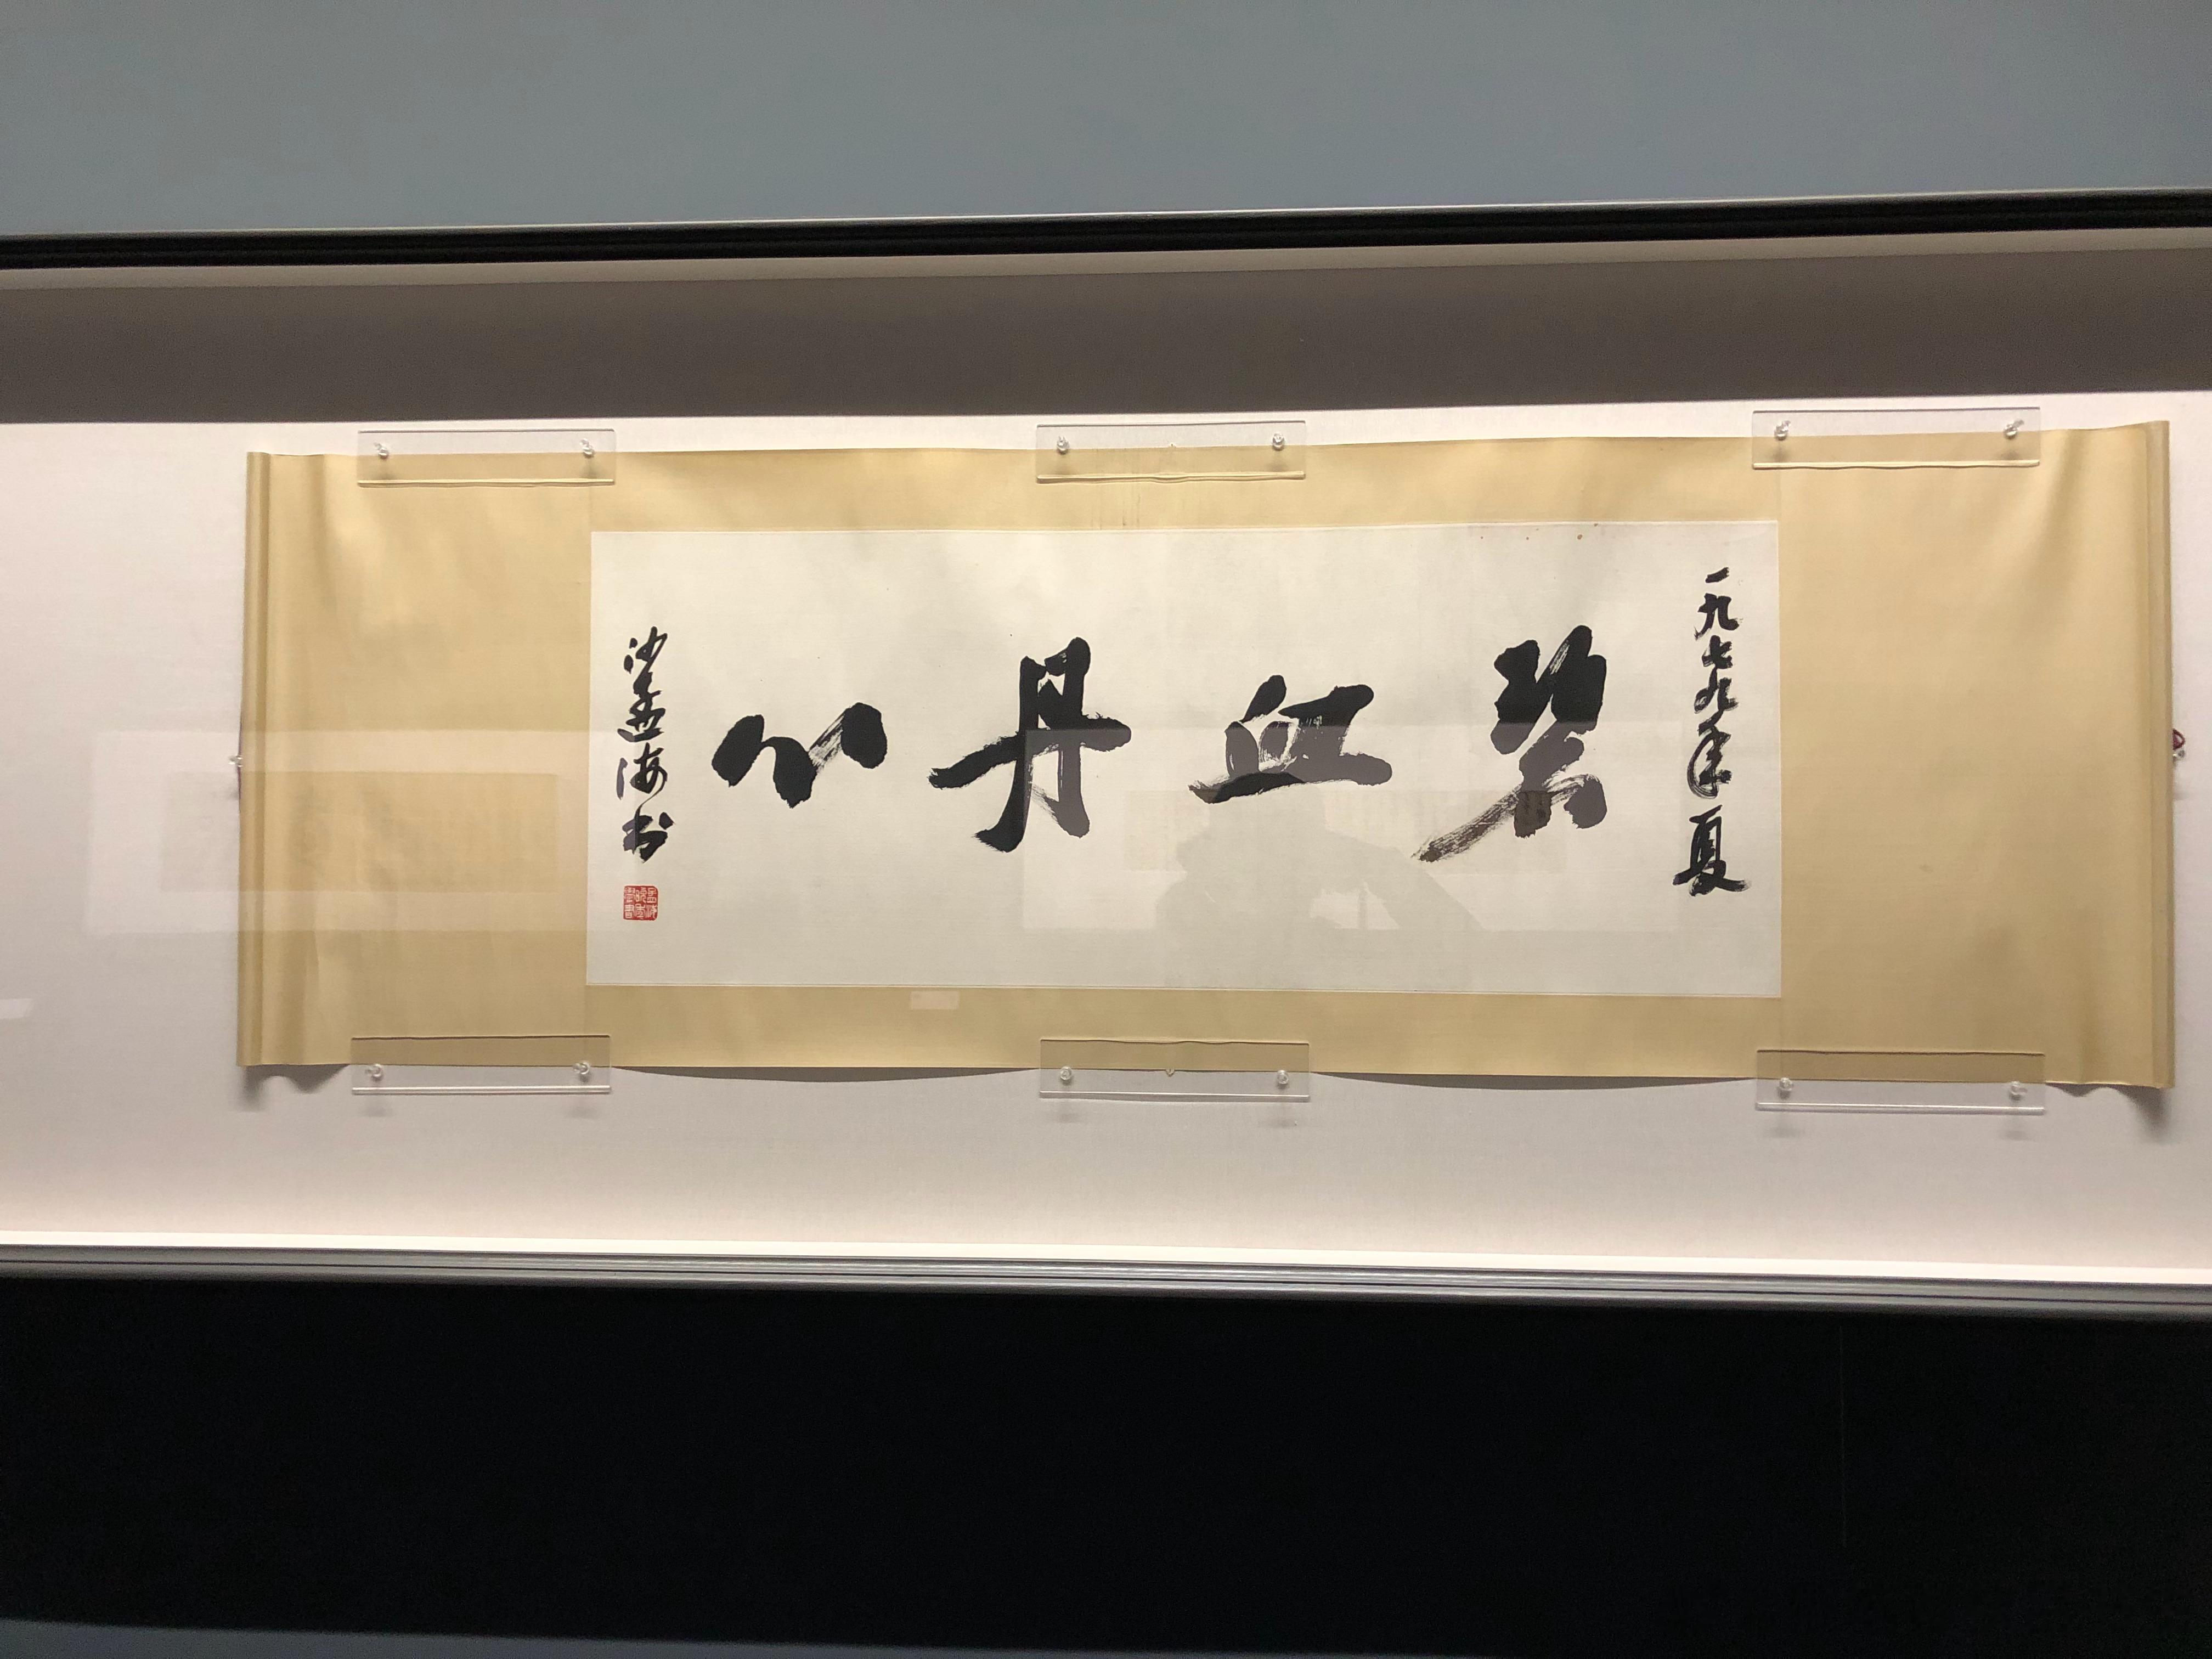 一九七九年夏
碧血丹心
沙孟海书